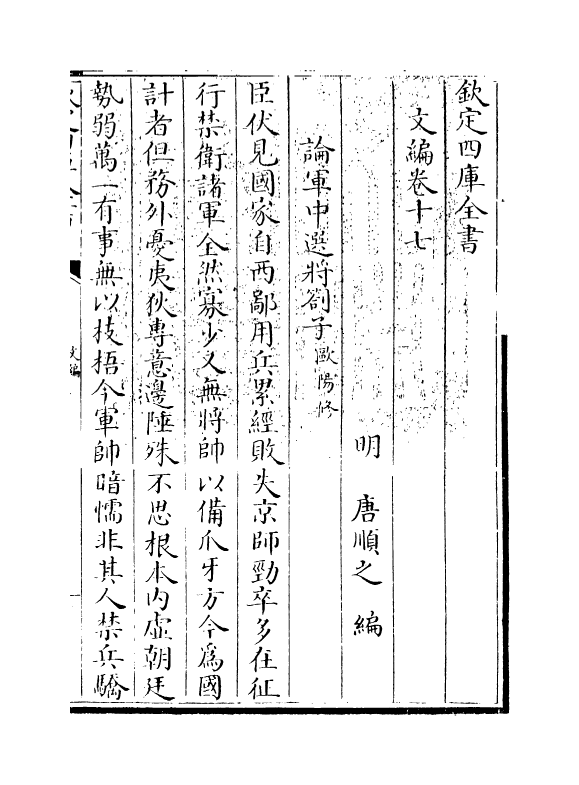 欽定四庫全書
文編卷十七
明 唐順之 編
論軍中選將劄子歐陽修
臣伏見國家自西鄙用兵累經敗失京師勁卒多在征
行禁衛諸軍全然寡少又無將帥以備爪牙方今為國
計者但務外憂夷狄專意邊陲殊不思根本内虚朝廷
勢弱萬一有事無以枝梧今軍帥暗懦非其人禁兵驕
文編